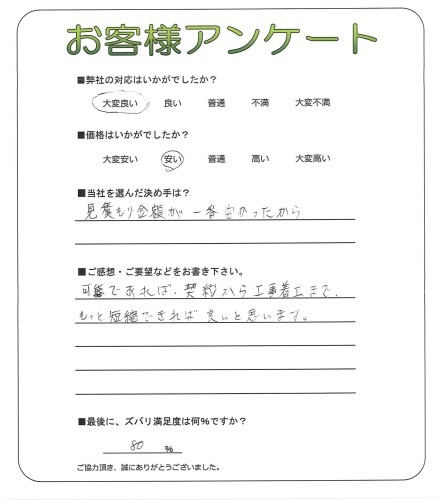 お客様アンケート
■弊社の対応はいかがでしたか?
大変良い 良い 普通 不満 大変不満
■価格はいかがでしたか?
大変安い 安い 普通 高い 大変高い
■当社を選んだ決め手は?
見積もり金額が一番安かったから
■ご感想・ご要望などをお書き下さい。
可能であれば、契約から工事着工まで、
もっと短縮できれば良いと思います。
■最後に、ズバリ満足度は何%ですか?
80 %
ご協力頂き、誠にありがとうございました。